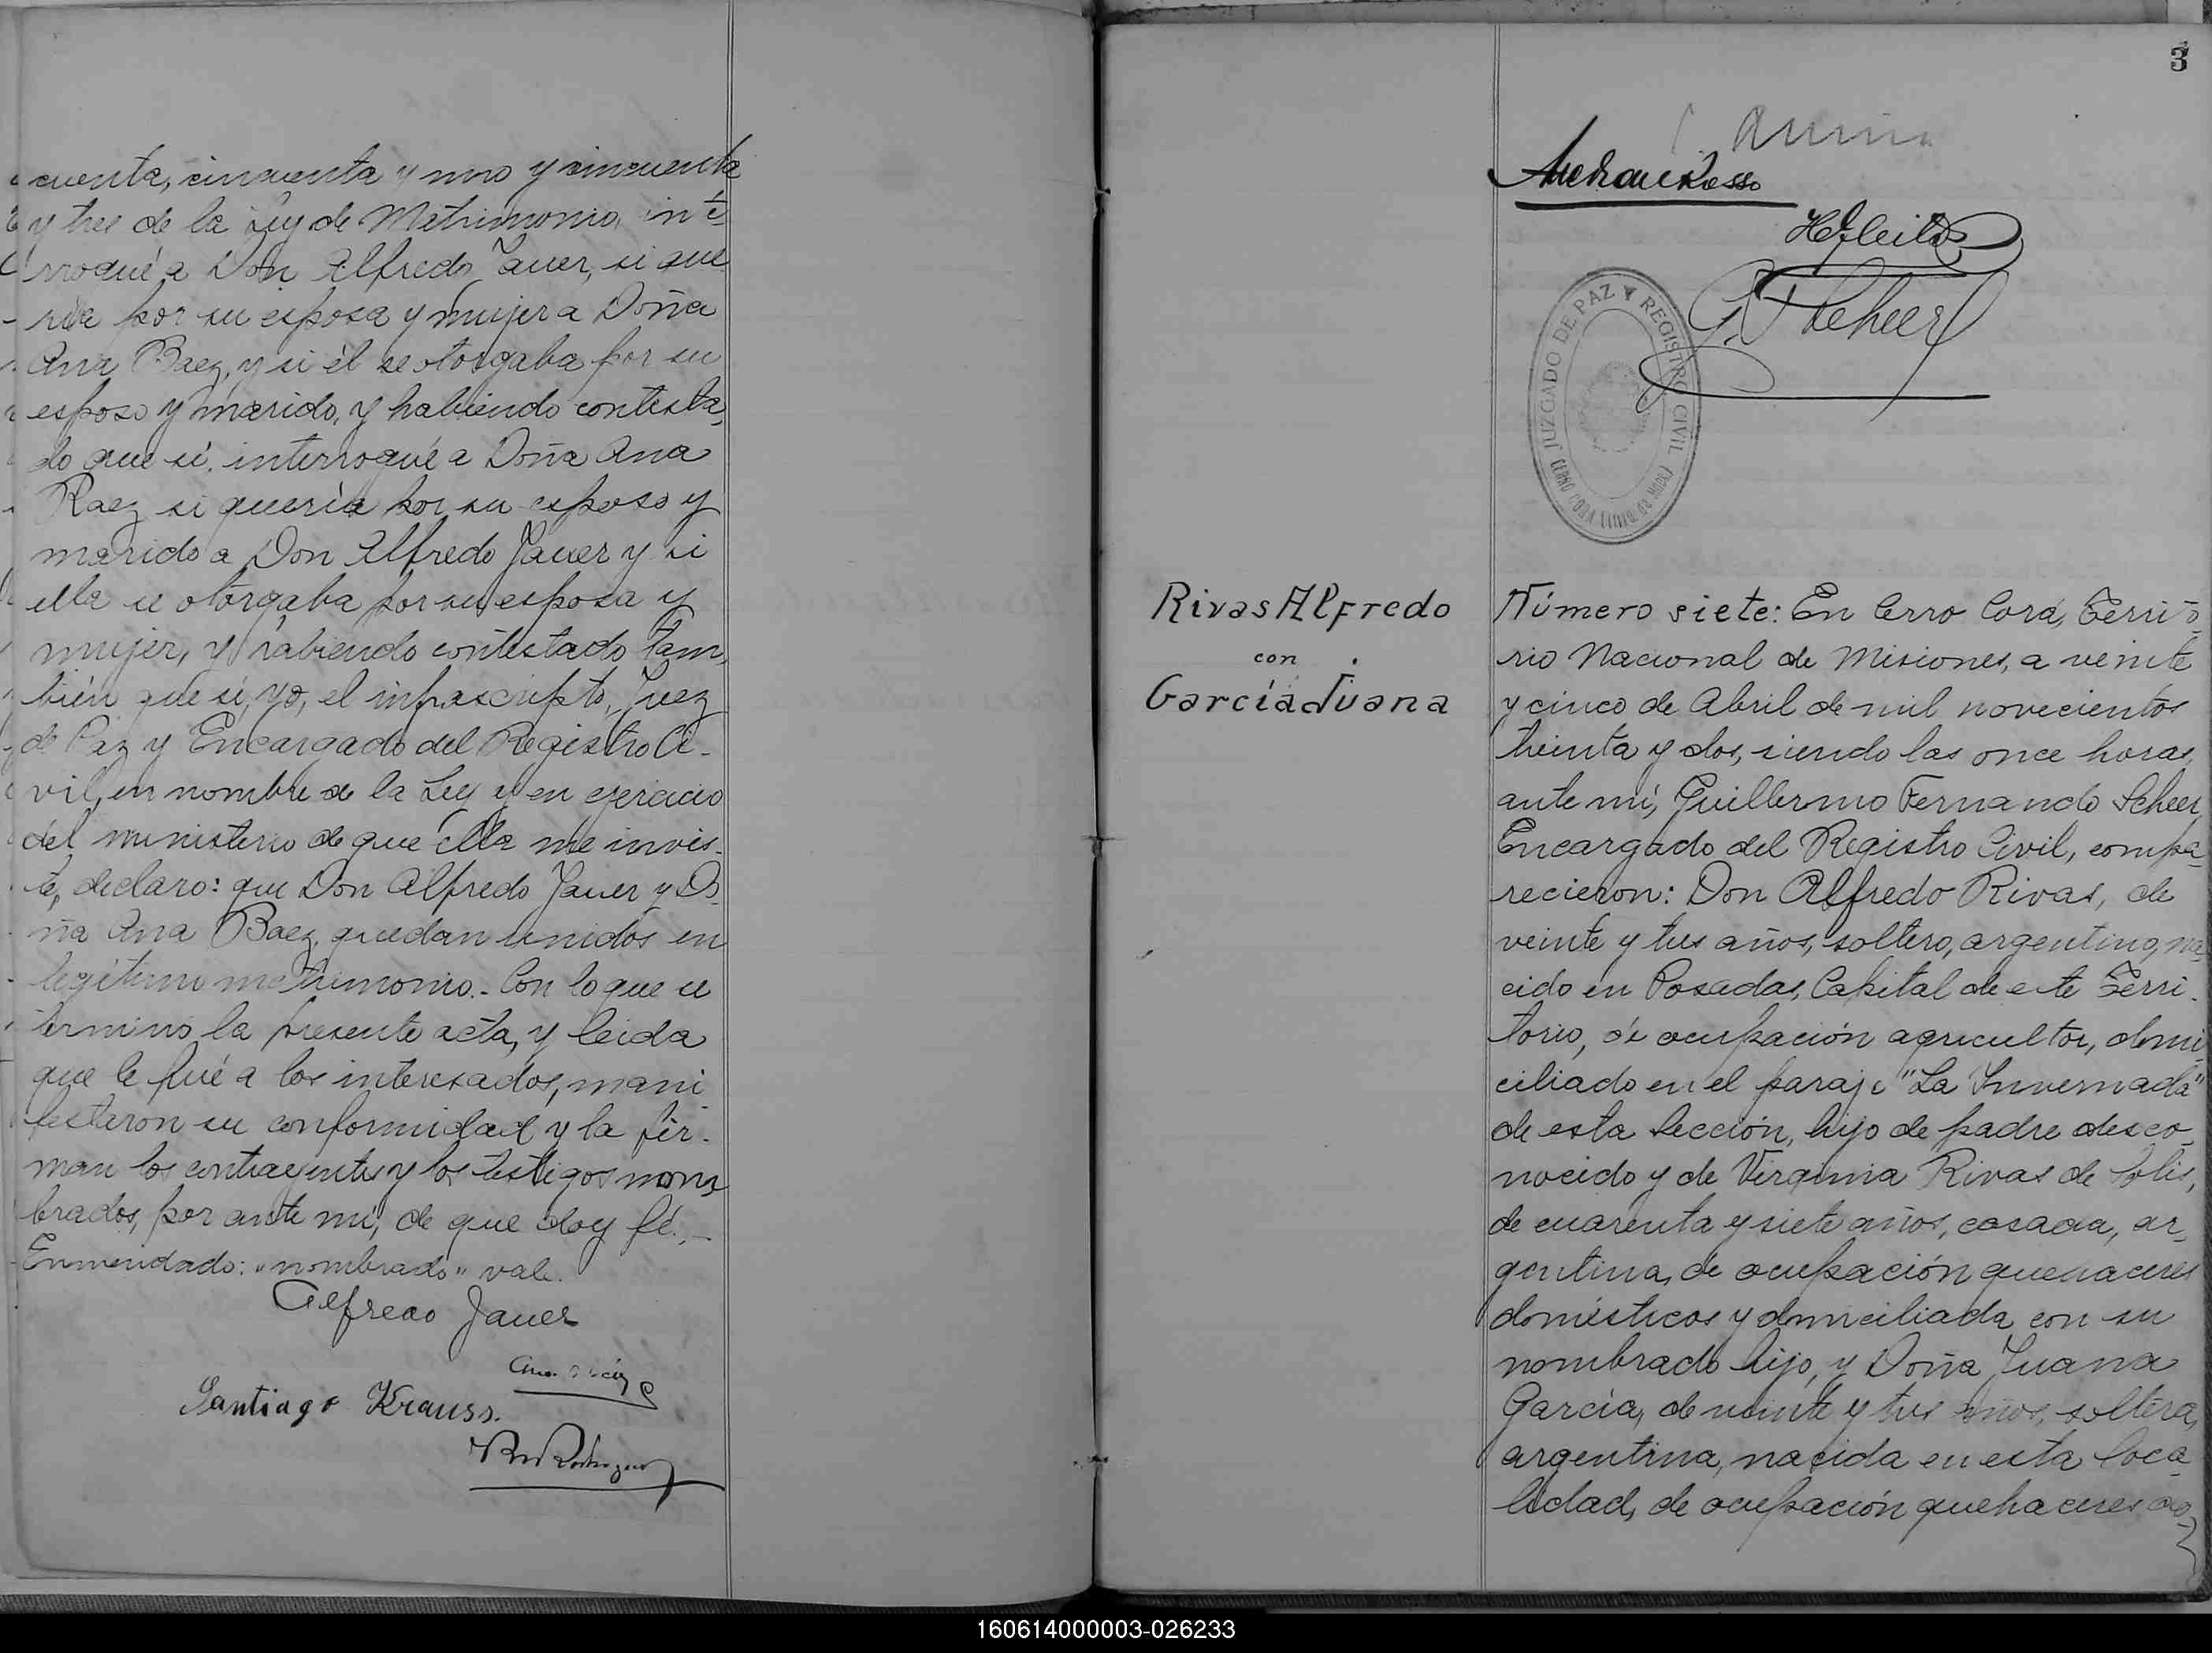 cuenta, cincuenta y uno y cincuenta
y tres de la Ley de Matrimonio, inte-
rroqué a Don Alfredo Jauer, si que
ría por su esposa y mujer a Doña
Ana Baez, y si él se otorgaba por su
esposo y marido, y habiendo contesta-
do que sí, interroqué a Doña Ana
Baez si quería por su esposo y
marido a Don Alfredo Jauer y si
ella se otorgaba por su esposa y
mujer, y habiendo contestado tam-
bién que sí, yo, el infrascripto, Juez
de Paz y Encargado del Registro Ci-
vil, en nombre de la Ley y en ejercicio
del ministerio de que ella me invis-
te, declaro: que Don Alfredo Jauer y Do-
ña Ana Baez, quedan unidos en
legítimo matrimonio.- Con lo que se
terminó la presente acta, y leida
que le fué a los interesados, mani-
festaron su conformidad y la fir-
man los contrayentes y los testigos nom-
brados, por ante mi, de que doy fé.-
Enmendado: "nombrado" vale.
Alfredo Jauer
Ana Baez
Santiago Krauss.
3
G. F. Scheer
JUZGADO DE PAZ Y REGISTRO CIVIL
CERRO CORA
Rivas Alfredo
con
García Juana
Número siete: En Cerro Corá, Territo-
rio Nacional de Misiones, a veinte
y cinco de Abril de mil novecientos
treinta y dos, siendo las once horas,
ante mí, Guillermo Fernando Scheer,
Encargado del Registro Civil, compa-
recieron: Don Alfredo Rivas, de
veinte y tres años, soltero, argentino, na-
cido en Posadas, Capital de este Terri-
torio, de ocupación agricultor, domi-
ciliado en el paraje "La Invernada"
de esta Sección, hijo de padre desco-
nocido y de Virginia Rivas de Solis,
de cuarenta y siete años, casada, ar-
gentina, de ocupación quehaceres
domésticos y domiciliada con su
nombrado hijo, y Doña Juana
García, de veinte y tres años, soltera,
argentina, nacida en esta loca-
lidad, de ocupación quehaceres do-
160614000003-026233